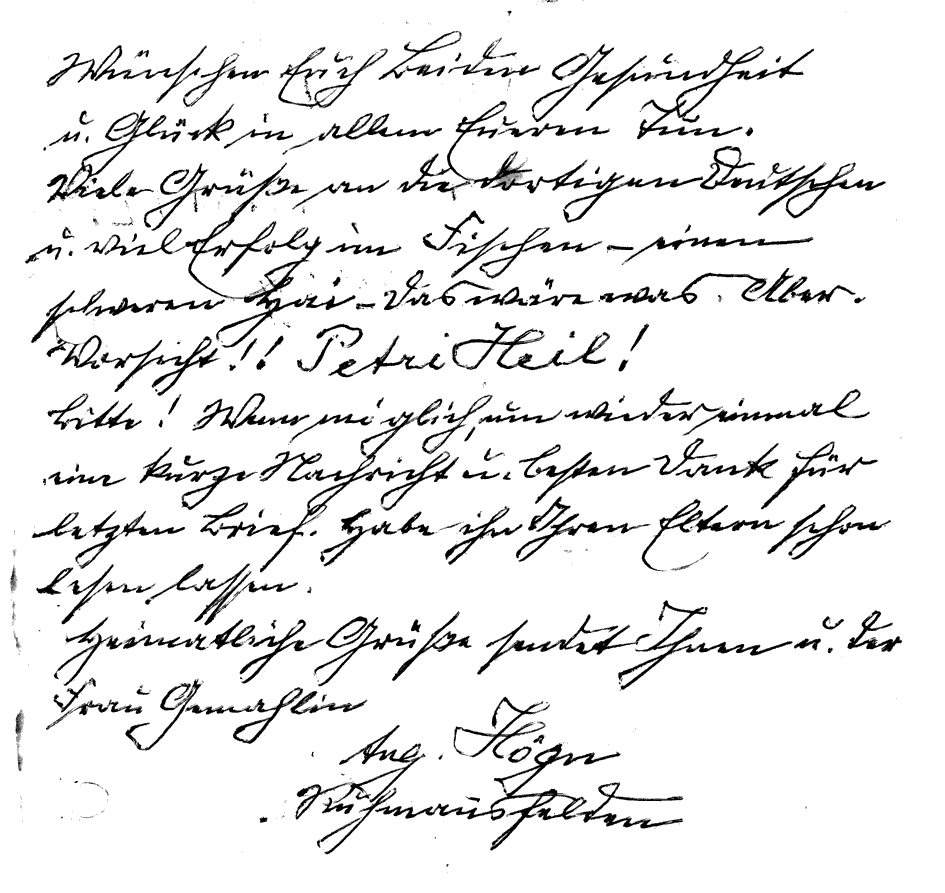 Wünschen Euch Beiden Gesundheit
u. Glück in allem Eueren Tun.
Viele Grüße an die dortigen Deutschen
u. viel Erfolg im Fischen – einen
schweren Hai – das wäre was. Aber.
Vorsicht!! Petri Heil!
Bitte! Wenn möglich, um wieder einmal
eine kurze Nachricht u. besten Dank für
letzten Brief. Habe ihn Ihren Eltern schon
lesen lassen.
Heimatliche Grüße sendet Ihnen u. der
Frau Gemahlin
Aug. Högn
Ruhmannsfelden